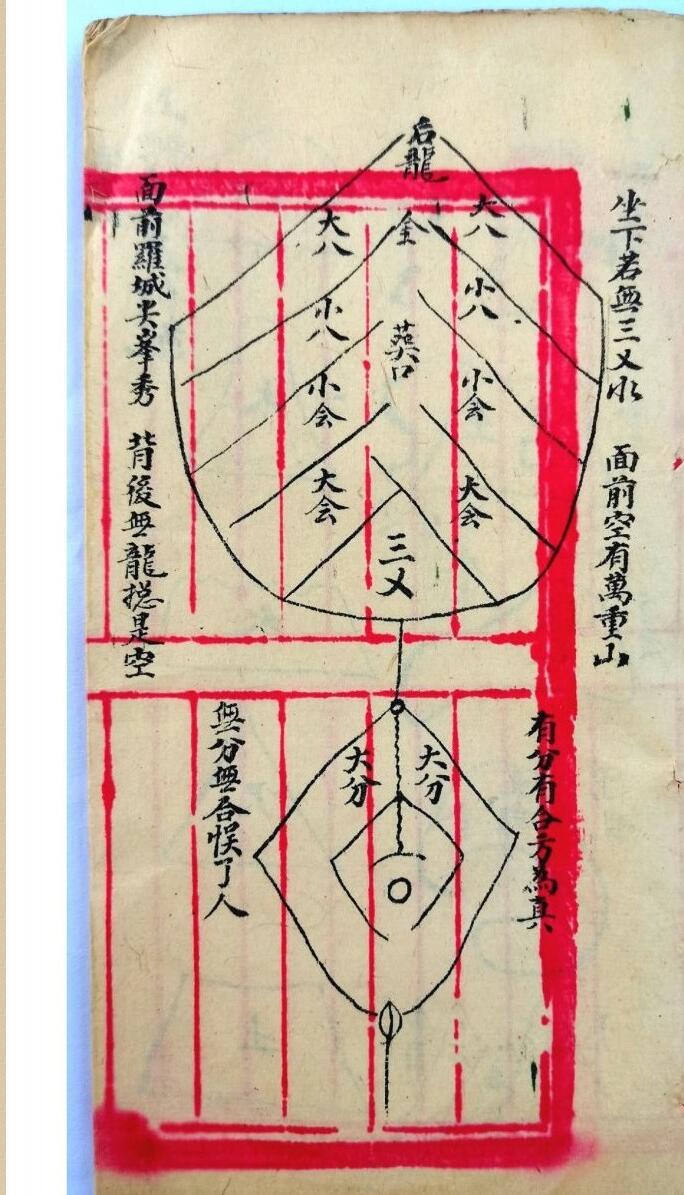 坐下若無三乂水　面前空有萬重山
后龍
大八
金
大八
小八
小八
葬口
小会
小会
大会
大会
三乂
面前羅城尖峯秀　背後無龍捴是空
有分有合方為真
大分
大分
無分無合悮了人